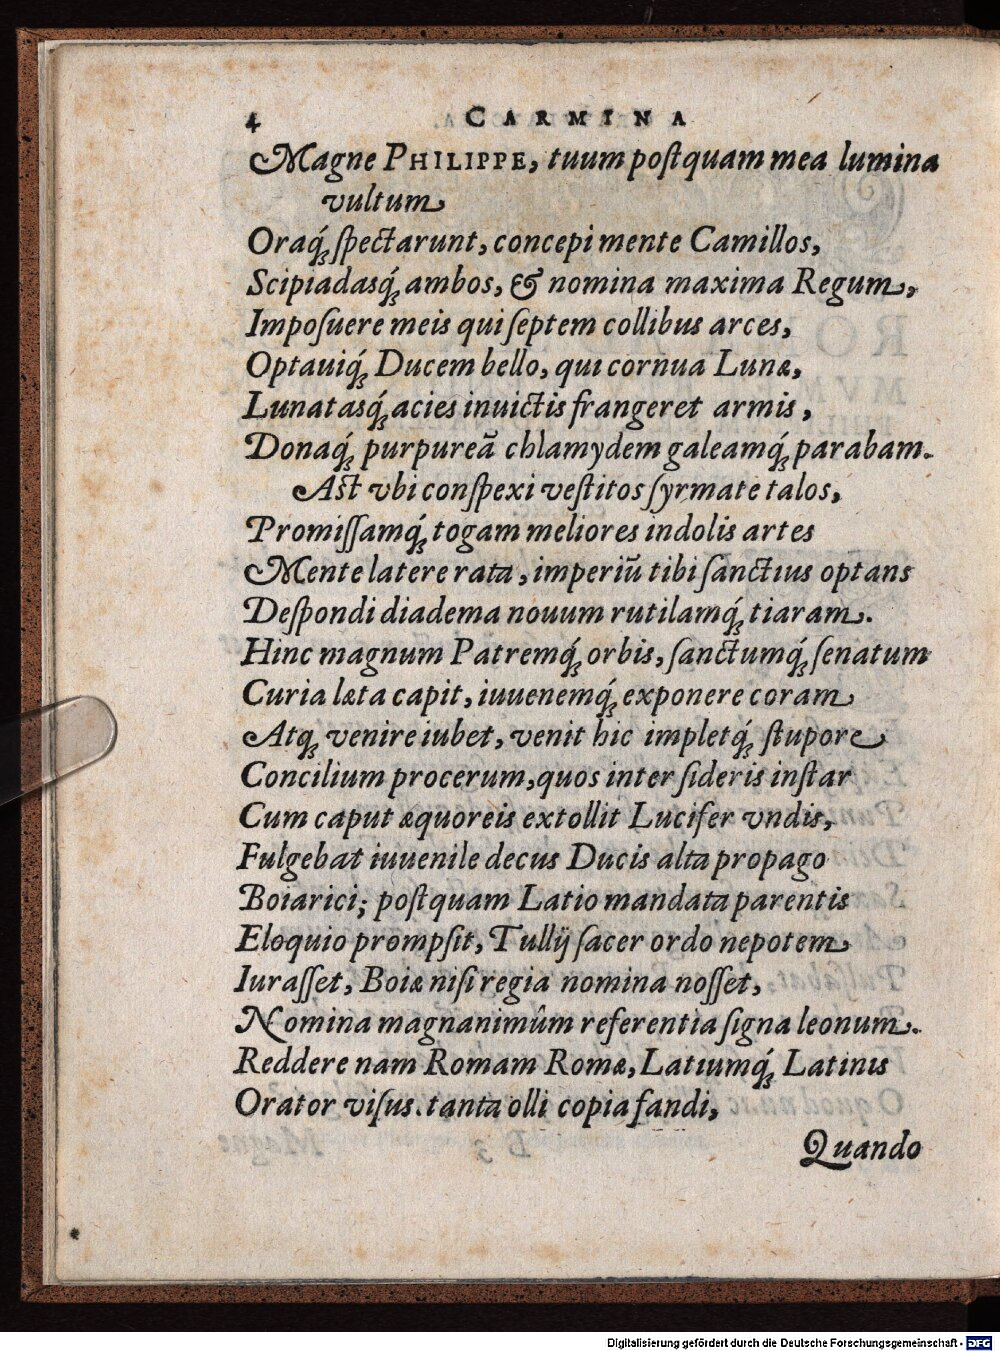 4 CARMINA
Magne PHILIPPE, tuum poſtquam mea lumina
vultum
Oraq́ꝫ ſpectarunt, concepi mente Camillos,
Scipiadasq́ꝫ ambos, & nomina maxima Regum,
Impoſuere meis qui ſeptem collibus arces,
Optauiq́ꝫ Ducem bello, qui cornua Lunæ,
Lunatasq́ꝫ acies inuictis frangeret armis,
Donaq́ꝫ purpureā chlamydem galeamq́ꝫ parabam.
Aſt vbi conſpexi veſtitos ſyrmate talos,
Promiſſamq́ꝫ togam meliores indolis artes
Mente latere rata, imperiū tibi ſanctius optans
Deſpondi diadema nouum rutilamq́ꝫ tiaram.
Hinc magnum Patremq́ꝫ orbis, ſanctumq́ꝫ ſenatum
Curia læta capit, iuuenemq́ꝫ exponere coram
Atqꝫ venire iubet, venit hic impletq́ꝫ ſtupore
Concilium procerum, quos inter ſideris inſtar
Cum caput æquoreis extollit Lucifer vndis,
Fulgebat iuuenile decus Ducis alta propago
Boiarici; poſtquam Latio mandata parentis
Eloquio prompſit, Tullij ſacer ordo nepotem
Iuraſſet, Boiæ niſi regia nomina noſſet,
Nomina magnanimûm referentia ſigna leonum.
Reddere nam Romam Romæ, Latiumq́ꝫ Latinis
Orator viſus. tanta olli copia fandi,
Quando
Digitalisierung gefördert durch die Deutsche Forschungsgemeinschaft - DFG